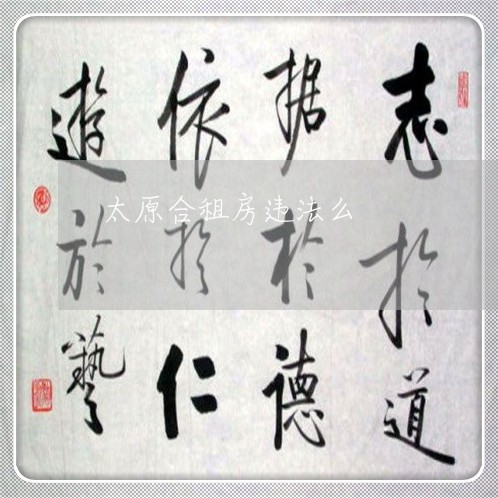 志於道
据於德
依於仁
遊於藝
太原合租房违法么